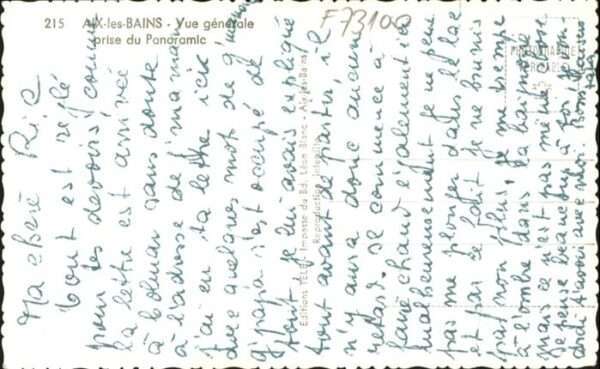 215 AIX-les-BAINS - Vue générale
prise du Panoramic
F73100
Ma chère Ric
tout est réglé
pour tes devoirs, comme
la lettre est arrivée
à Colman sans doute
à l'adresse de ma
j'ai eu ta lettre ici
avec quelques mot de
papa s'est occupé de
tout je lui avais expliqué
tout avant de partir, il
n'y aura donc aucun
retard. Il commence à
faire chaud également ici
malheureusement je ne peux
pas me plonger dans le lac
et par ce fait je ne bronze
pas non plus, je me trempe
à l'ombre dans la baignoire
mais ce n'est pas même chose
Je pense beaucoup à toi
avoir avec moi. Bons
Editions TELE - Impasse du Bd. Léon Blanc - Aix-les-Bains
Reproduction interdite